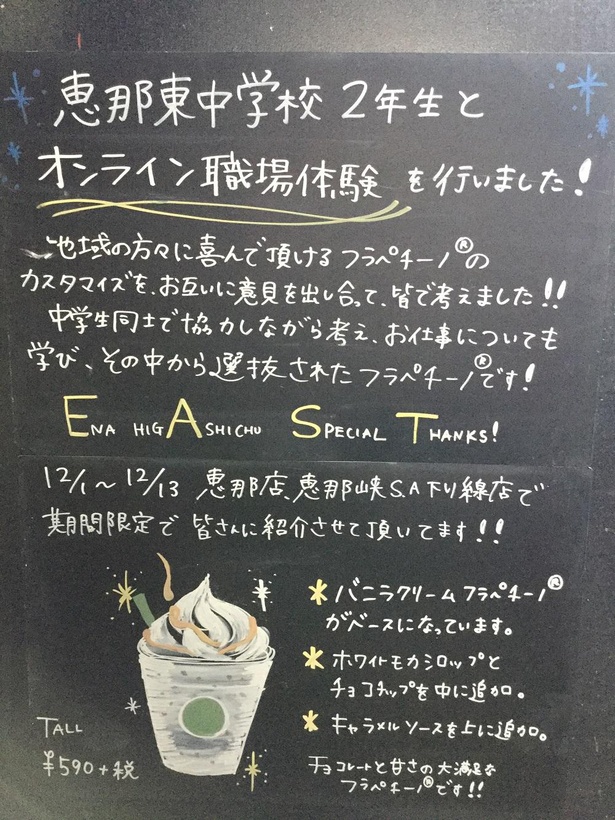 恵那東中学校 2年生と
オンライン職場体験 を行いました!
地域の方々に喜んで頂けるフラペチーノ®の
カスタマイズを、お互いに意見を出し合って、皆で考えました!!
中学生同士で協力しながら考え、お仕事についても
学び、その中から選抜されたフラペチーノ®です!
ENA HIGASHICHU SPECIAL THANKS!
12/1~12/13 恵那店、恵那峡S.A下り線店で
期間限定で 皆さんに紹介させて頂いてます!!
* バニラクリームフラペチーノ®
がベースになっています。
* ホワイトモカシロップと
チョコチップを中に追加。
* キャラメルソースを上に追加。
チョコレートと甘さの大満足な
フラペチーノ®です!!
TALL
¥590+税